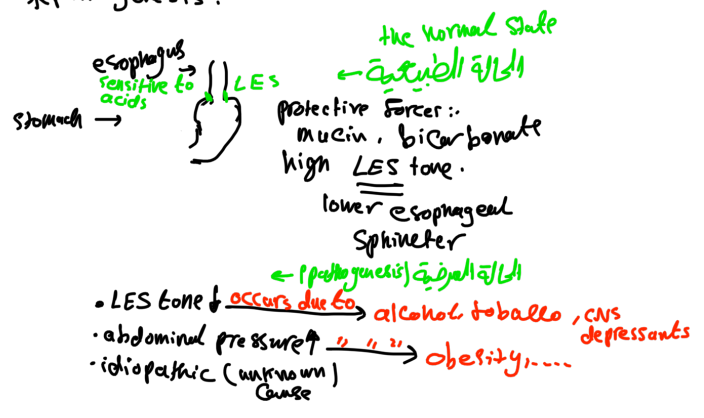 pathogenesis:
the normal state
← الحالة الطبيعية
esophagus →
sensitive to
acids
LES
stomach →
protective forces:.
mucin, bicarbonate
high LES tone.
lower esophageal
sphincter
← (pathogenesis) الحالة المرضية
• LES tone ↓ occurs due to → alcohol, toballo, CNS
depressants
• abdominal pressure ↑ " " " → obesity, ....
• idiopathic (unknown)
cause